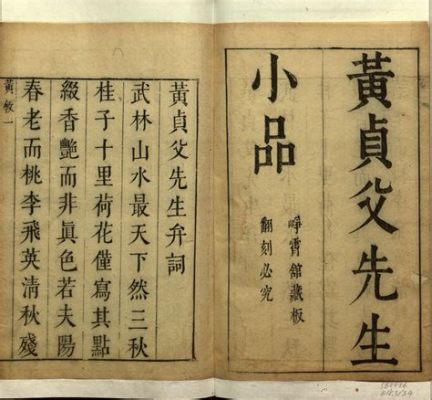 黃貞父先生
小品
崢霄館藏板
翻刻必究
黃貞父先生弁詞
武林山水最天下然三秋
桂子十里荷花僅寫其點
綴香艷而非眞色若夫陽
春老而桃李飛英清秋殘
黃敘一